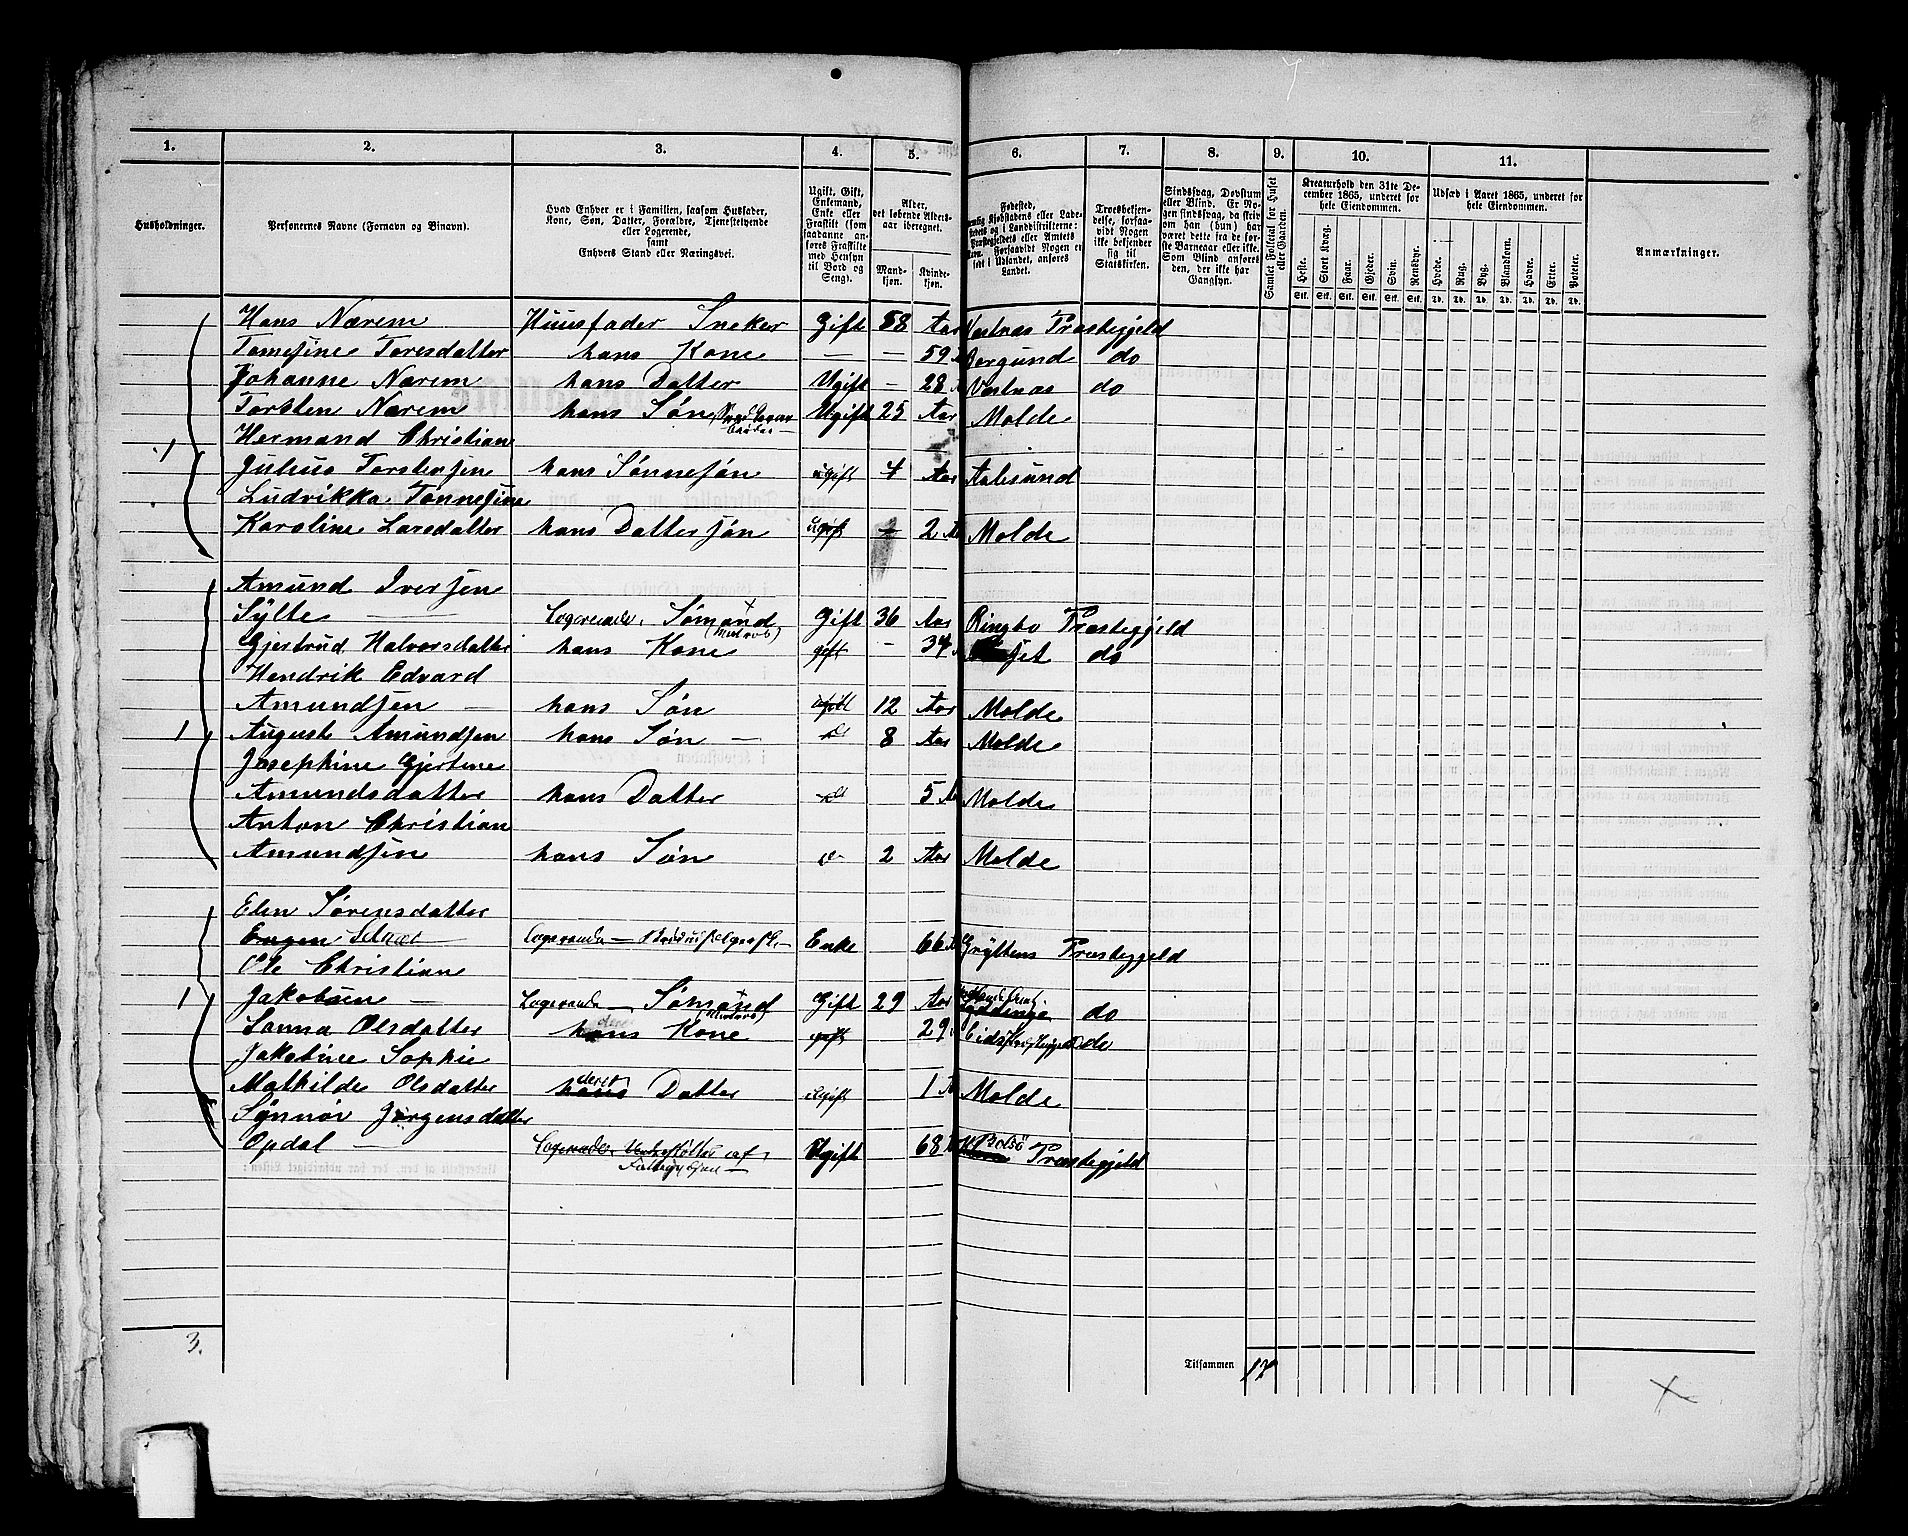 1. 2. 3. 4. 5. 6. 7. 8. 9. 10. 11.
Husholdninger.
Personernes Navne (Fornavn og Binavn).
Hvad Enhver er i Familien, saasom Husfader,
Kone, Søn, Datter, Forældre, Tjenestetyende
eller Logerende,
samt
Enhvers Stand eller Næringsvei.
Ugift, Gift,
Enkemand,
Enke eller
Fraskilt (som
saadanne an-
føres Fraskilte
med Hensyn
til Bord og
Seng).
Alder,
det løbende Alders-
aar iberegnet.
Mand-
kjøn.
Kvinde-
kjøn.
Fødested,
Kjøbstadens eller Lade-
stedets og i Landdistrikterne:
Præstegjeldets eller Amtets
Navn. Forsaavidt Nogen er
født i Udlandet, anføres
Landet.
Troesbekjen-
delse, forsaa-
vidt Nogen
ikke bekjender
sig til
Statskirken.
Sindssvag, Døvstum
eller Blind. Er No-
gen sindssvag, da skriv
om han (hun) har
været dette fra de før-
ste Barneaar eller ikke.
Som Blind anføres
den, der ikke har
Gangsyn.
Samlet Folketal for Huset
eller Gaarden.
Kreaturhold den 31te De-
cember 1865, underet for
hele Eiendommen.
Heste. Stort Kvæg. Faar. Gjeder. Svin. Rensdyr.
Stk. Stk. Stk. Stk. Stk. Stk.
Udsæd i Aaret 1865, underet for
hele Eiendommen.
Hvede. Rug. Byg. Blandkorn. Havre. Erter. Poteter.
Td. Td. Td. Td. Td. Td. Td.
Anmærkninger.
Hans Nærem Huusfader Sneker Gift 58 Aar Vestnæs Præstegjeld
Tomesine Toresdatter hans Kone — — 59 Borgund do
Johanne Nærem hans Datter Ugift — 28 Vestnæs do
Torsten Nærem hans Søn Ugift 25 Aar Molde
Hermand Christian
1 Julius Torstensen hans Sønnesøn ugift 4 Aar Aalesund
Ludvikka Tonnesine
Karoline Larsdatter hans Dattersøn ugift 2 Aar Molde
Amund Iversen
Sylte — Logerende, Sømand Gift 36 Aar Ringbo Præstegjeld
Gjertrud Halvorsdatter hans Kone gift — 34 do
Hendrik Edvard
Amundsen — hans Søn ugift 12 Aar Molde
1 August Amundsen hans Søn — do 8 Aar Molde
Josephine Gjertine
Amundsdatter hans Datter do 5 Aar Molde
Anton Christian
Amundsen hans Søn do 2 Aar Molde
Elen Sørensdatter
Logerende — Enke 66 Gryttens Præstegjeld
Ole Christian
1 Jakobsen — Logerende — Sømand Gift 29 Aar do
Sanna Olsdatter hans Kone gift 29 do
Jakobine Sophie
Mathilde Olsdatter hans deres Datter Ugift 1 Molde
Synnøv Jørgensdatter
Opdal — Logerende, Understøttes af Ugift 68 Bolsø Præstegjeld
3.
Tilsammen 17